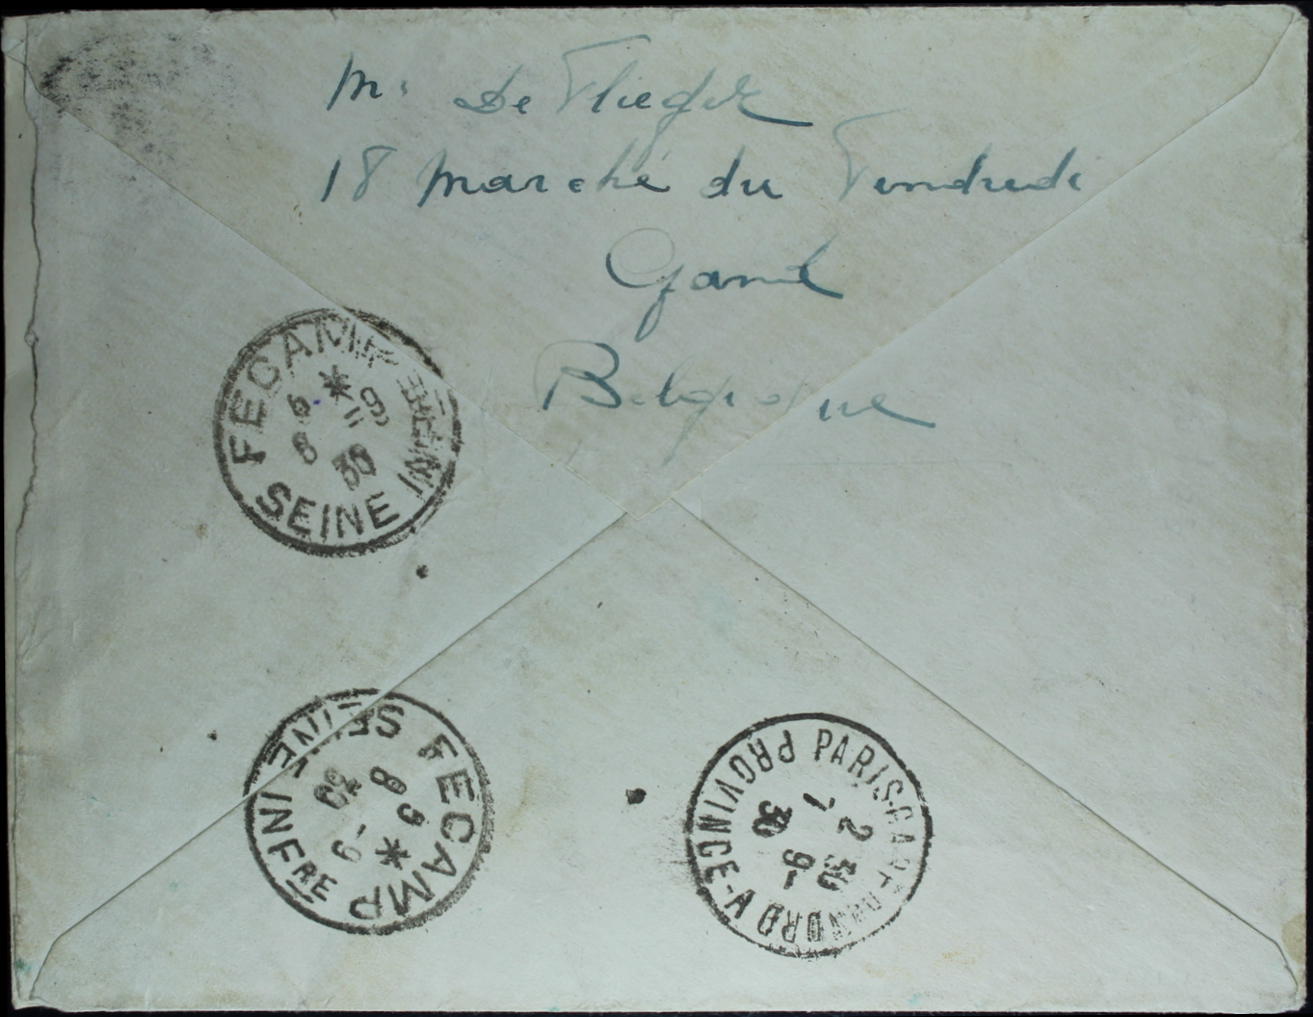 Mr De Vlieger
18 Marché du Vendredi
Gand
Belgique
FECAMP
SEINE INFRE
6 * -9
6 30
FECAMP
SEINE INFRE
8 5 * -9
30
PARIS-GARE DU NORD
PROVINCE-A
2 30
1 -9
30